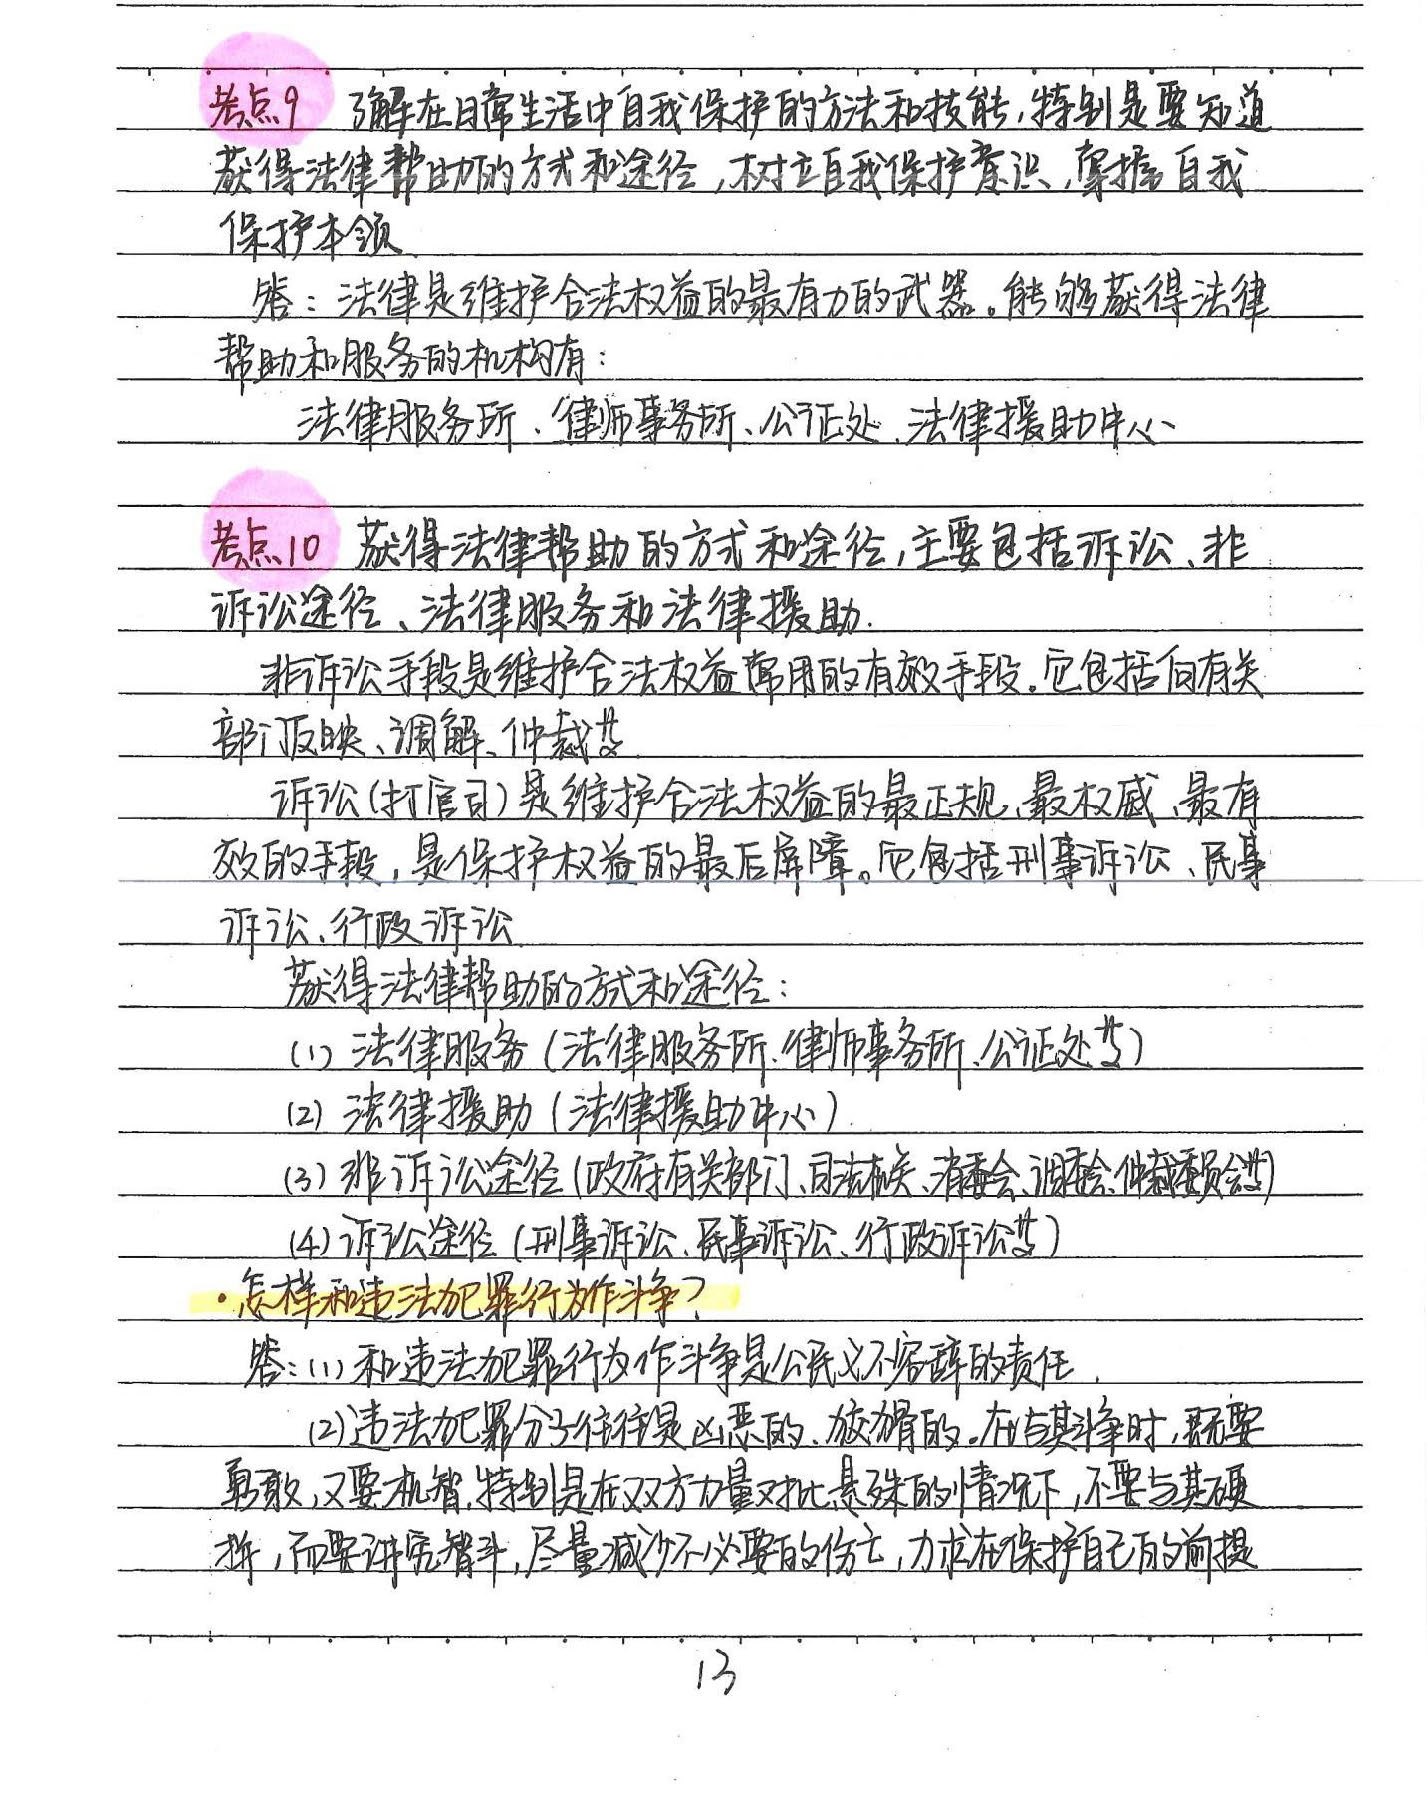 考点9 了解在日常生活中自我保护的方法和技能,特别是要知道
获得法律帮助的方式和途径,树立自我保护意识,掌握自我
保护本领.
答:法律是维护合法权益的最有力的武器。能够获得法律
帮助和服务的机构有:
法律服务所、律师事务所、公证处、法律援助中心
考点10 获得法律帮助的方式和途径,主要包括诉讼、非
诉讼途径、法律服务和法律援助.
非诉讼手段是维护合法权益常用的有效手段。它包括向有关
部门反映、调解、仲裁等
诉讼(打官司)是维护合法权益的最正规、最权威、最有
效的手段,是保护权益的最后屏障。它包括刑事诉讼、民事
诉讼、行政诉讼.
获得法律帮助的方式和途径:
(1) 法律服务(法律服务所、律师事务所、公证处等)
(2) 法律援助(法律援助中心)
(3) 非诉讼途径(政府有关部门、司法机关、消委会、调委会、仲裁委员会等)
(4) 诉讼途径(刑事诉讼、民事诉讼、行政诉讼等)
·怎样和违法犯罪行为作斗争?
答:(1) 和违法犯罪行为作斗争是公民义不容辞的责任.
(2)违法犯罪分子往往是凶恶的、狡猾的。在与其斗争时,既要
勇敢,又要机智.特别是在双方力量对比悬殊的情况下,不要与其硬
拼,而要讲究智斗,尽量减少不必要的伤亡,力求在保护自己的前提
13